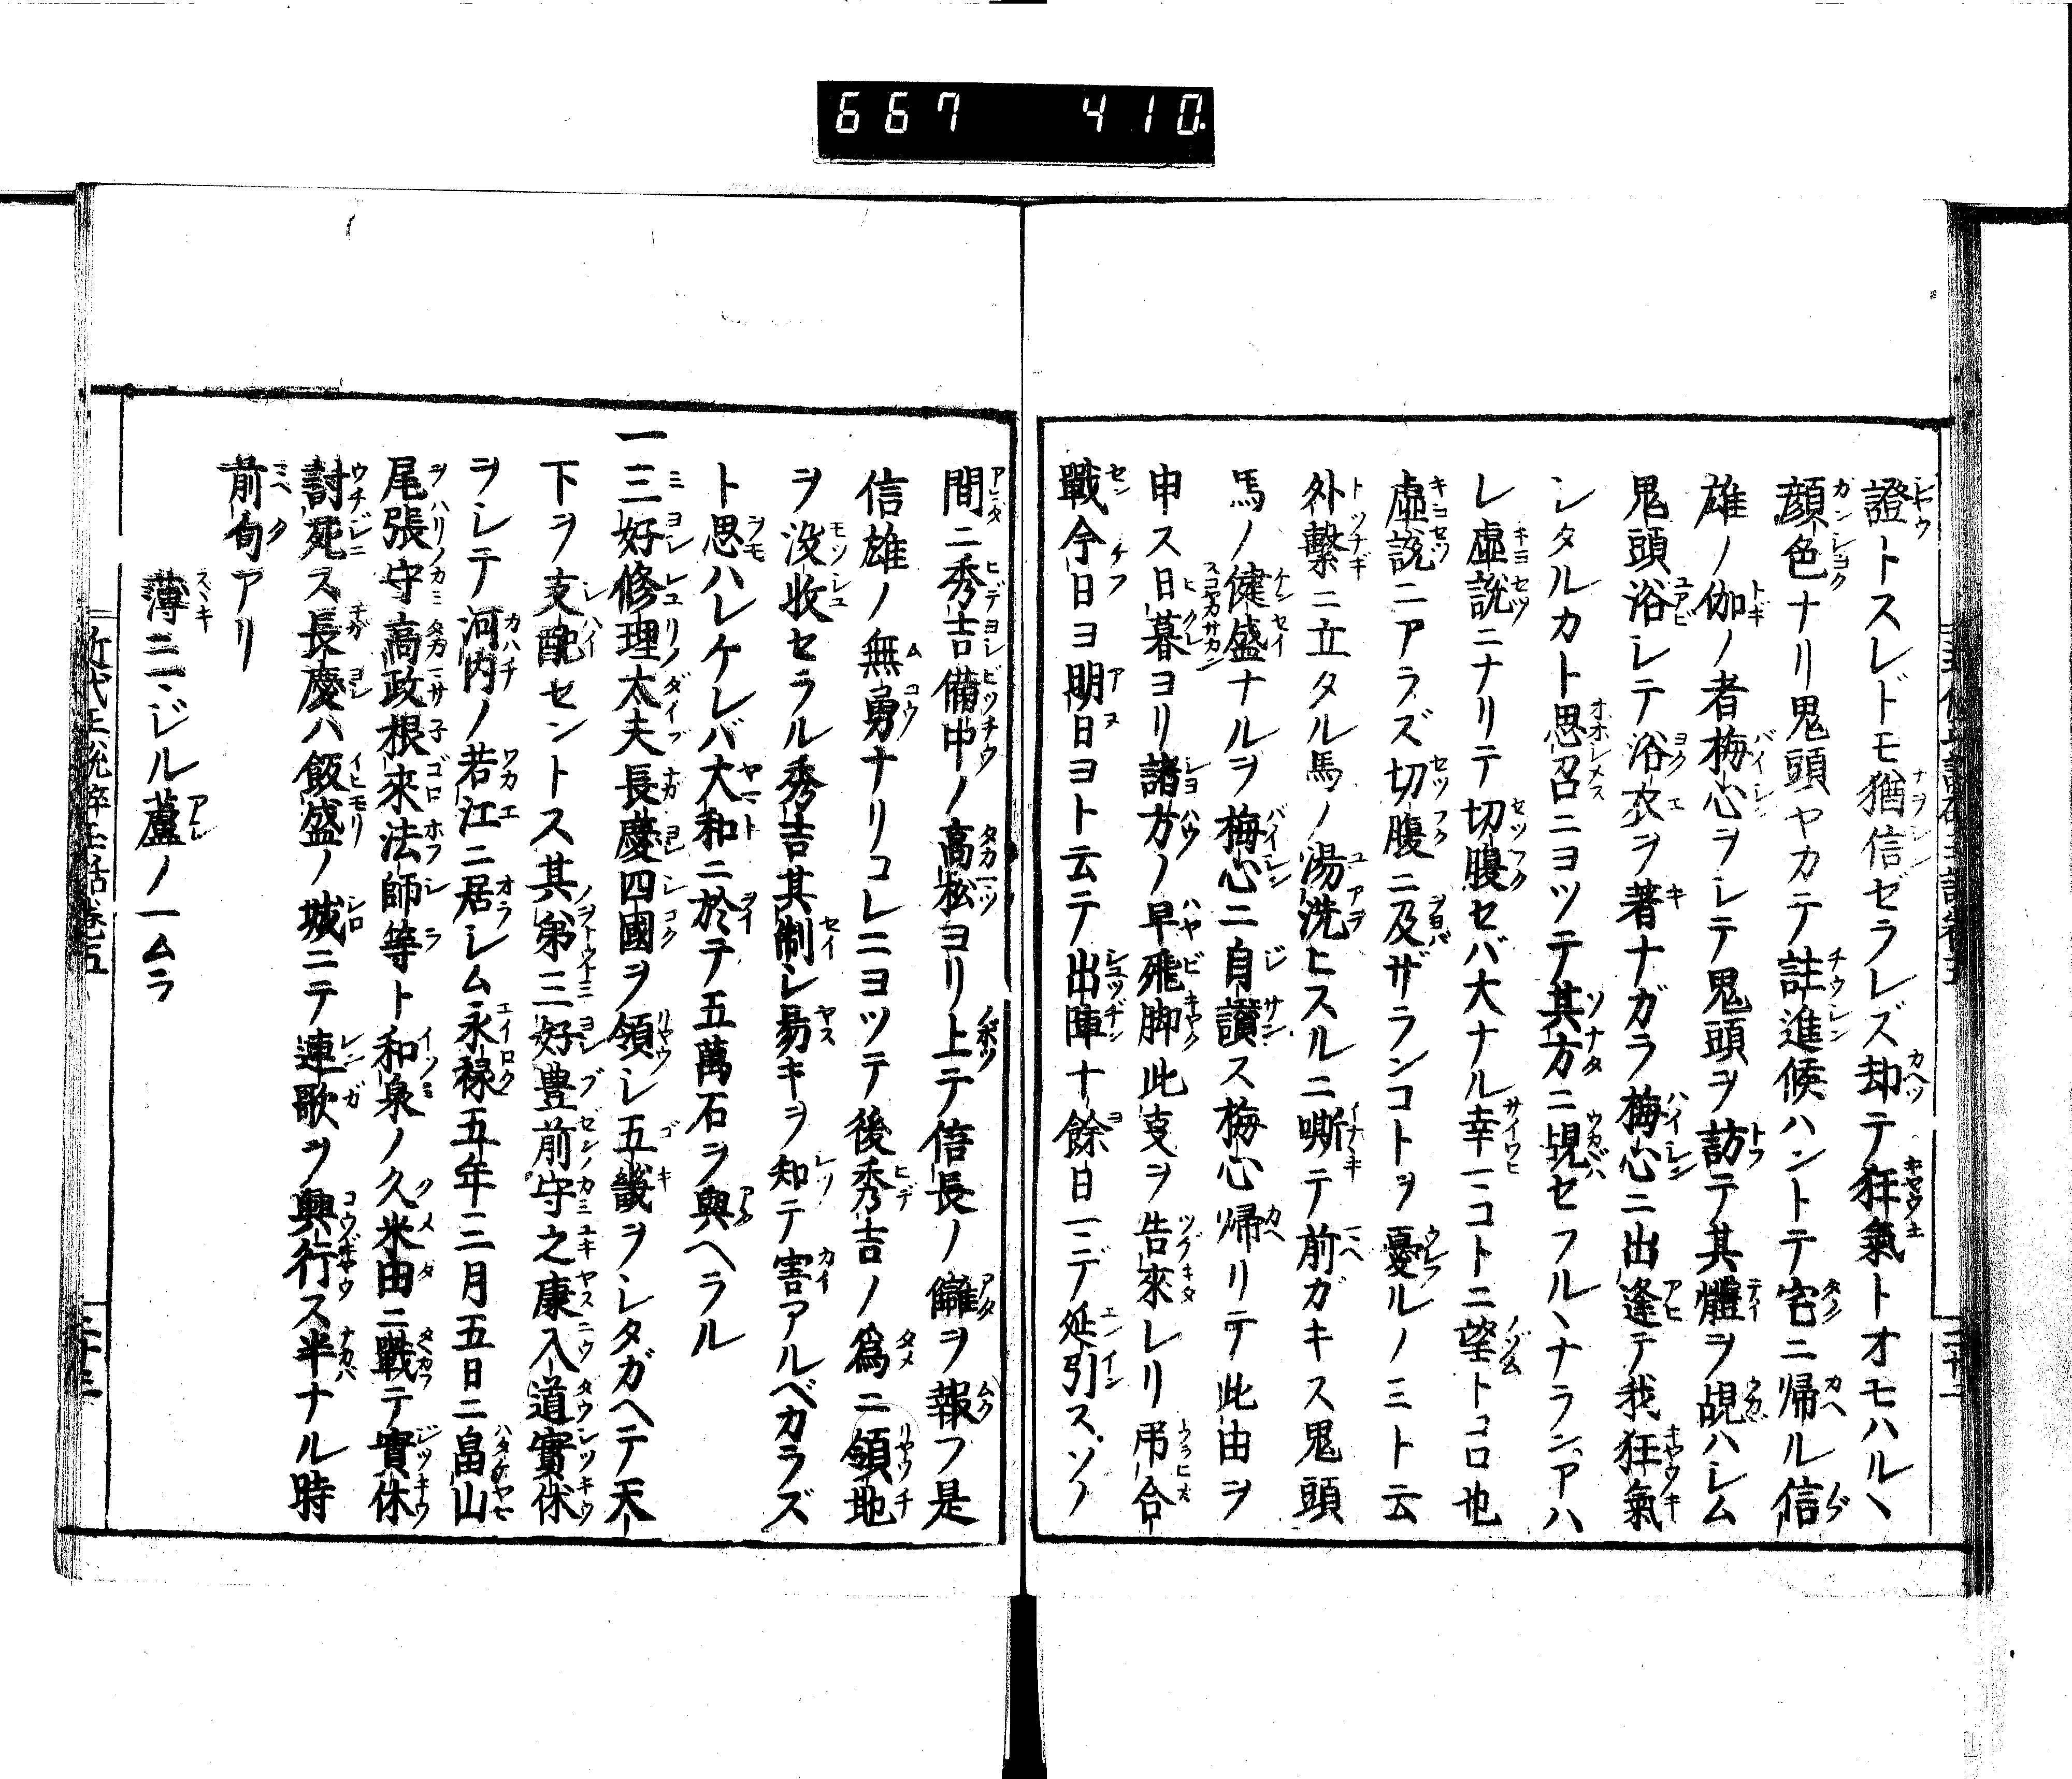 667 410.
證トスレドモ猶信ゼラレズ却テ狂氣トオモハルヽ
顔色ナリ鬼頭ヤカテ註進候ハントテ宅ニ帰ル信
雄ノ伽ノ者梅心ヲシテ鬼頭ヲ訪テ其體ヲ覘ハシム
鬼頭浴シテ浴衣ヲ著ナガラ梅心ニ出逢テ我狂氣
シタルカト思召ニヨツテ其方ニ覘セフルヽナランアハ
レ虚説ニナリテ切腹セバ大ナル幸マコトニ望トコロ也
虚説ニアラズ切腹ニ及ザランコトヲ憂ルノミト云
外繫ニ立タル馬ノ湯洗ヒスルニ嘶テ前ガキス鬼頭
馬ノ健盛ナルヲ梅心ニ自讃ス梅心帰リテ此由ヲ
申ス日暮ヨリ諸方ノ早飛脚此支ヲ告來レリ弔合
戰今日ヨ明日ヨト云テ出陣十餘日マデ延引スソノ
間ニ秀吉備中ノ高松ヨリ上テ信長ノ讎ヲ報フ是
信雄ノ無勇ナリコレニヨツテ後秀吉ノ爲ニ領地
ヲ没收セラル秀吉其制シ易キヲ知テ害アルベカラズ
ト思ハレケレバ大和ニ於テ五萬石ヲ與ヘラル
一三好修理太夫長慶四國ヲ領シ五畿ヲシタガヘテ天
下ヲ支配セントス其弟三好豊前守之康入道實休
ヲシテ河内ノ若江ニ居シム永禄五年三月五日ニ畠山
尾張守高政根來法師等ト和泉ノ久米田ニ戰テ實休
討死ス長慶ハ飯盛ノ城ニテ連歌ヲ興行ス半ナル時
前句アリ
薄ニマジル蘆ノ一ムラ
近代正説碎玉話卷五